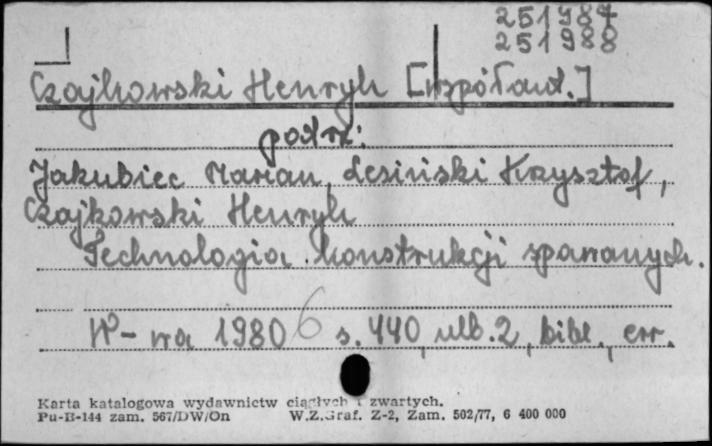 251987
251988
Czajkowski Henryk [współaut.]
podrz:
Jakubiec Marian, Lesiński Krzysztof,
Czajkowski Henryk
Technologia konstrukcji spawanych.
W-wa 1980 6 s. 440, nlb. 2, bibl., err.
Karta katalogowa wydawnictw ciągłych i zwartych.
Pu-B-144 zam. 567/DW/On W.Z.Graf. Z-2, Zam. 502/77, 6 400 000